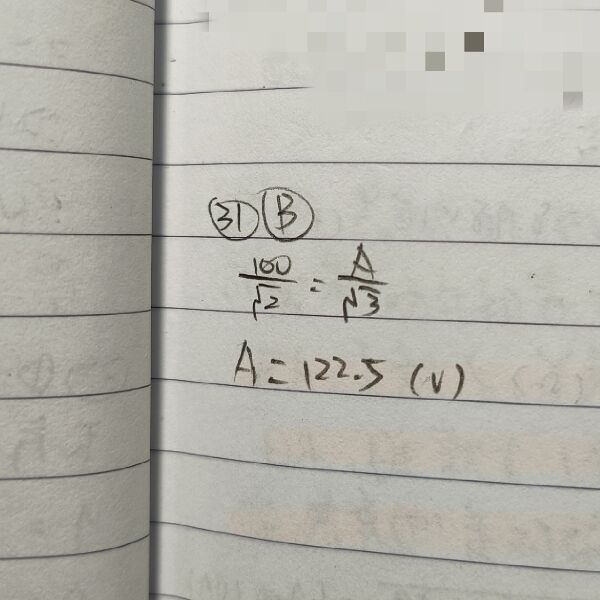 ㉛ Ⓑ
100/√2 = A/√3
A = 122.5 (V)